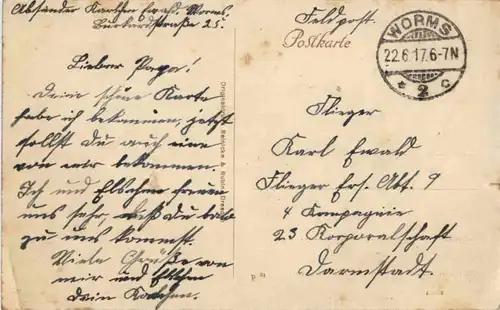 Absender Karlchen Ewald, Worms
Burkardstraße 25.
Lieber Papa!
Deine schöne Karte
habe ich bekommen, jetzt
sollst Du auch eine
von mir bekommen.
Ich und Elschen freuen
uns sehr, daß Du bald
zu uns kommst.
Viele Grüße von
mir und Elschen
Dein Karlchen.
Feldpost.
Postkarte
WORMS
22.6.17.6-7N
* 2 c
Flieger
Karl Ewald
Flieger Ers. Abt. 9
4 Kompagnie
23 Korporalschaft
Darmstadt.